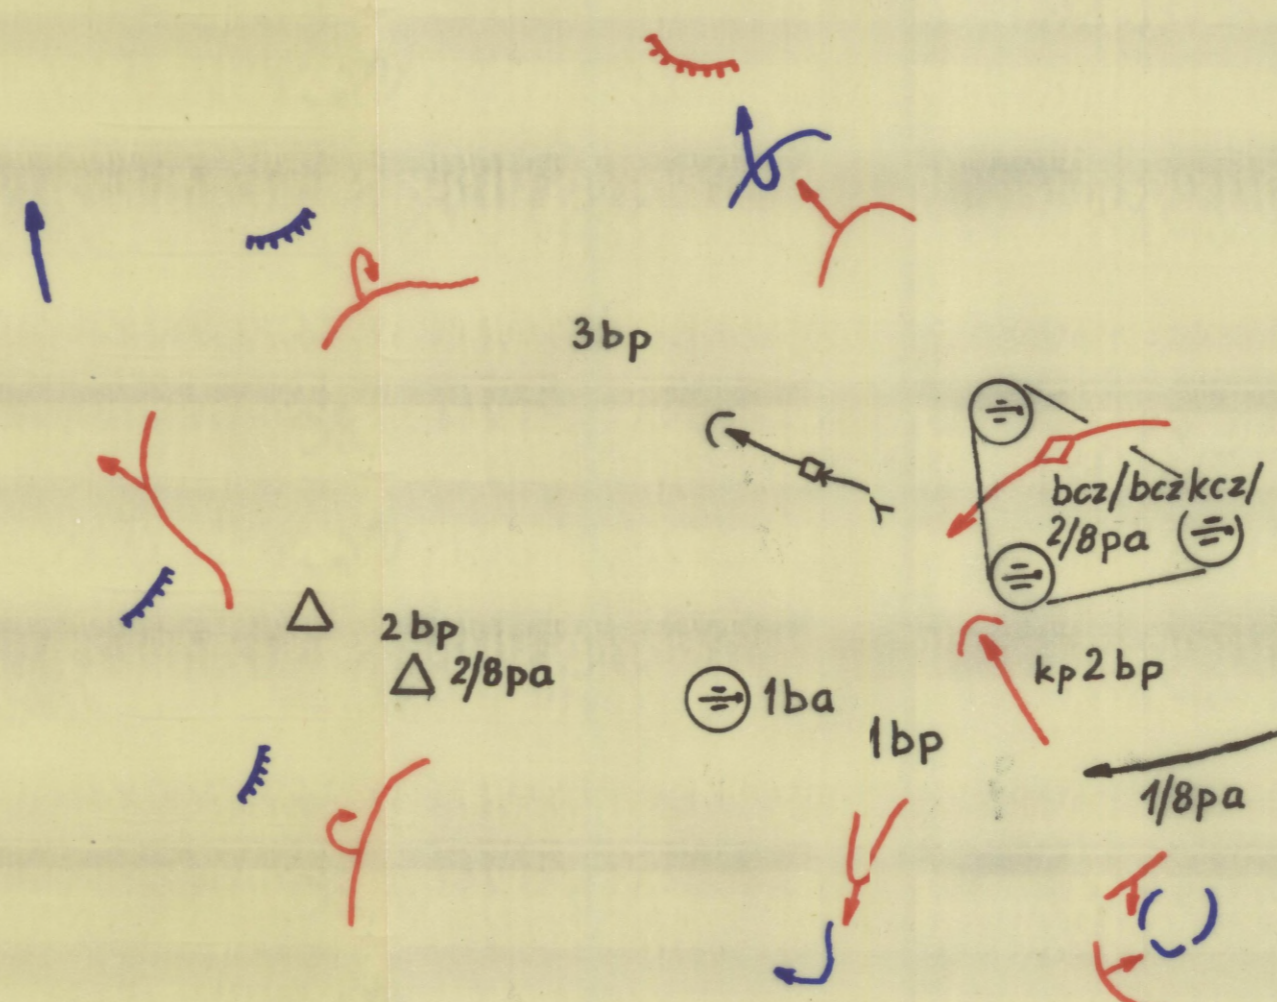 3bp
bcz/bczkcz/
2/8pa
2bp
2/8pa
kp2bp
1ba
1bp
1/8pa